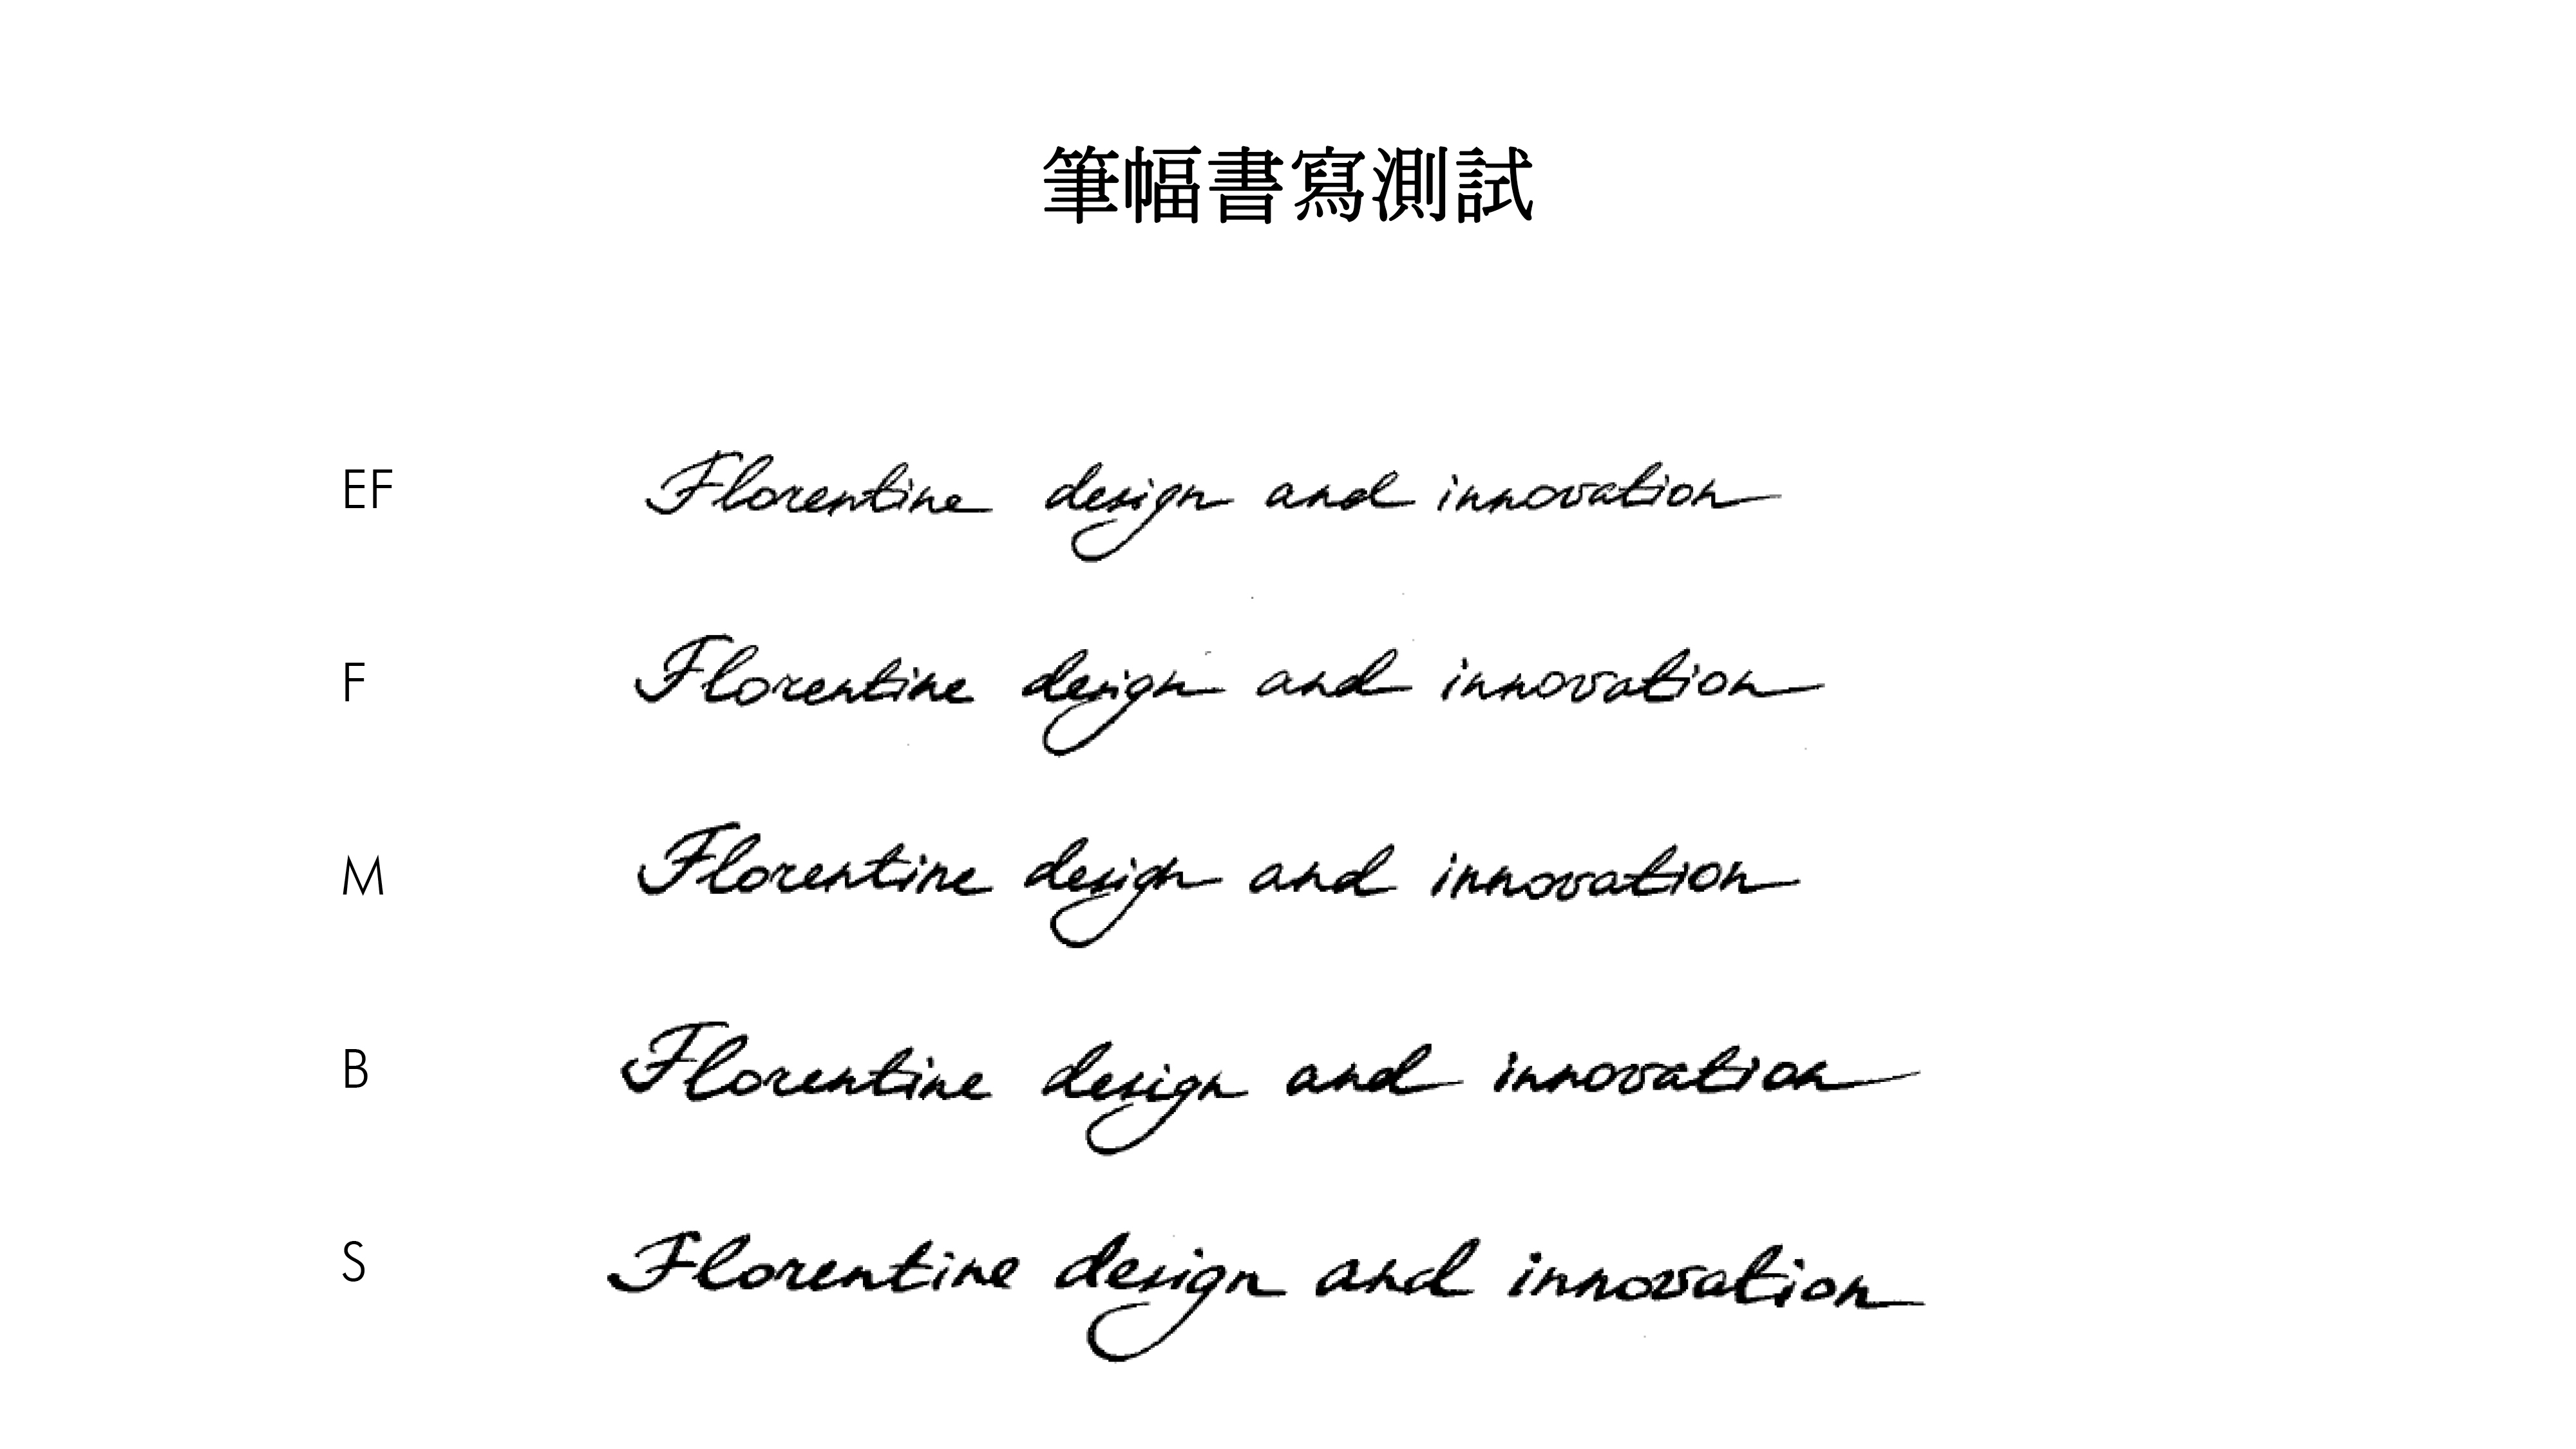 筆幅書寫測試
EF Florentine design and innovation
F Florentine design and innovation
M Florentine design and innovation
B Florentine design and innovation
S Florentine design and innovation